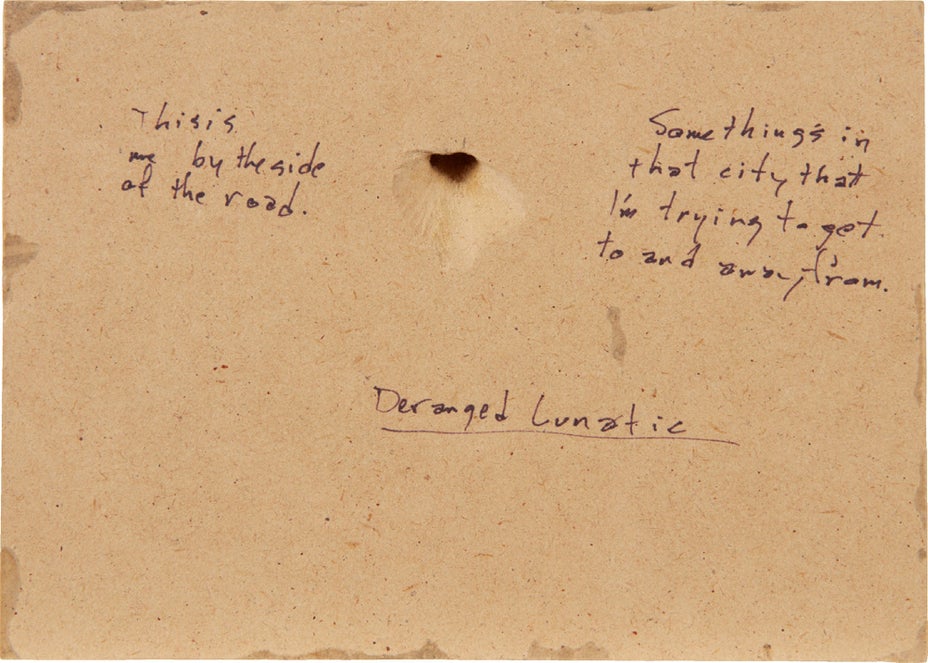 This is
me by the side
of the road.
Something's in
that city that
I'm trying to get
to and away from.
Deranged Lunatic